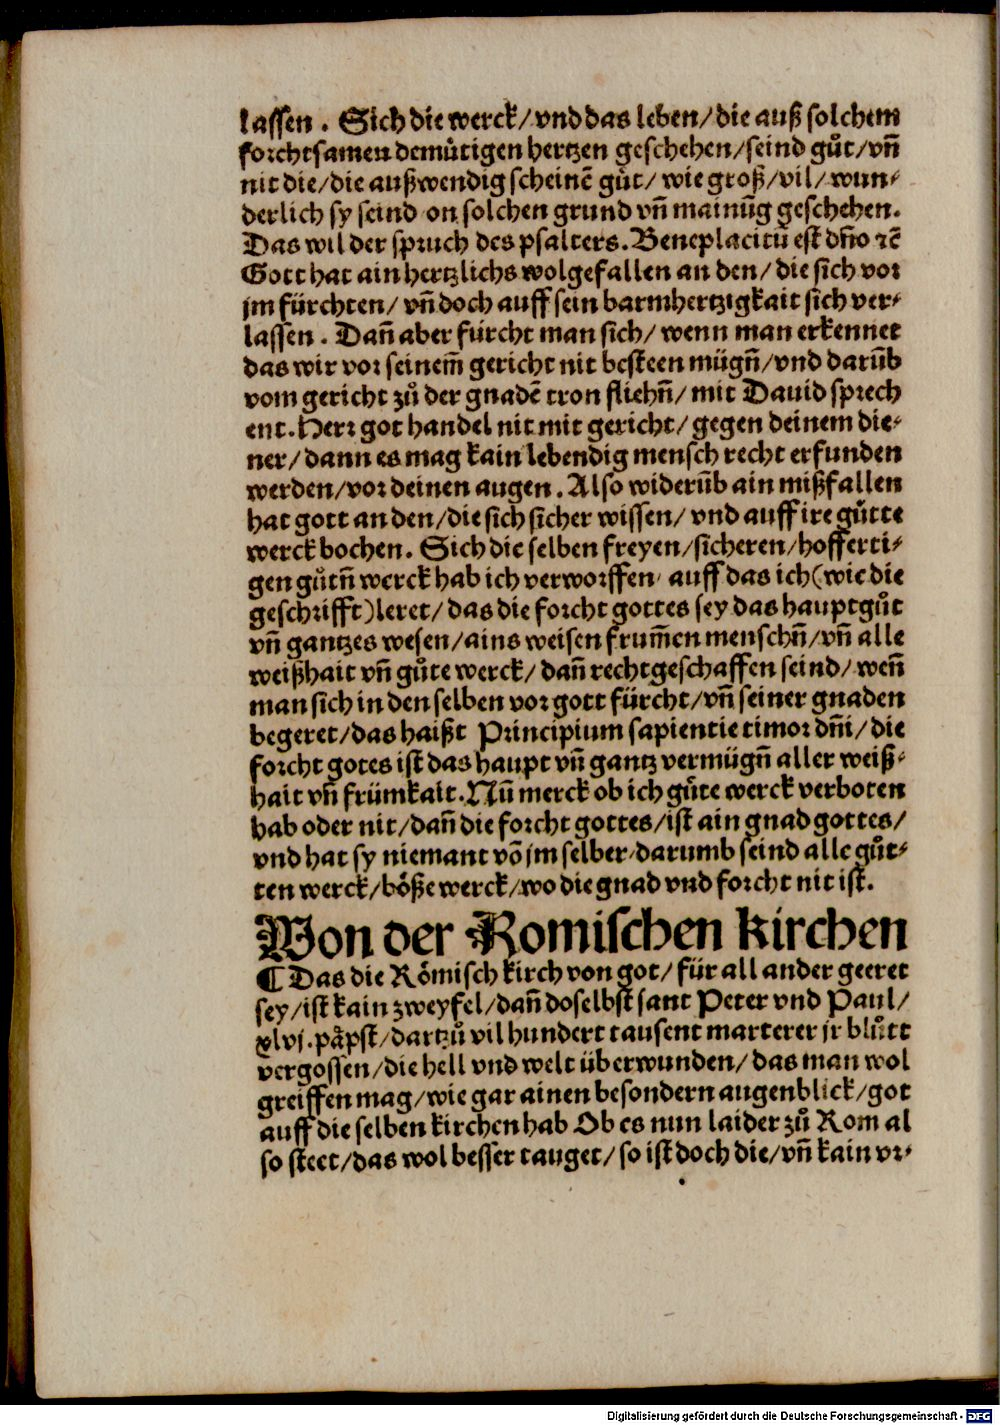 lassen . Sich die werck/vnd das leben/die auß solchem
forchtsamen demůtigen hertzen geschehen/seind gůt/vñ
nit die/die außwendig scheinẽ gůt/ wie groß/vil/ wun-
derlich sy seind on solchen grund vñ mainũg geschehen.
Das wil der spruch des psalters. Beneplacitũ est dño ꝛẽ
Gott hat ain hertzlichs wolgefallen an den/ die sich vor
jm fürchten/ vñ doch auff sein barmhertzigkait sich ver-
lassen . Dañ aber fürcht man sich/ wenn man erkennet
das wir vor seinem̃ gericht nit besteen mügñ/vnd darũb
vom gericht zů der gnadẽ tron fliehñ/ mit Dauid sprech
ent. Herr got handel nit mit gericht/ gegen deinem die-
ner/ dann es mag kain lebendig mensch recht erfunden
werden/vor deinen augen . Also widerũb ain mißfallen
hat gott an den/die sich sicher wissen/ vnd auff ire gůtte
werck bochen. Sich die selben freyen/sicheren/hofferti-
gen gůtñ werck hab ich verworffen/ auff das ich (wie die
geschrifft) leret/ das die forcht gottes sey das hauptgůt
vñ gantzes wesen/ains weisen frum̃en menschñ/vñ alle
weißhait vñ gůte werck/ dañ rechtgeschaffen seind/ weñ
man sich in den selben vor gott fürcht/vñ seiner gnaden
begeret/das haißt Principium sapientie timor dñi/ die
forcht gotes ist das haupt vñ gantz vermügñ aller weiß-
hait vñ frümkait. Nũ merck ob ich gůte werck verboten
hab oder nit/dañ die forcht gottes/ist ain gnad gottes/
vnd hat sy niemant võ jm selber/darumb seind alle gůt-
ten werck/böße werck/wo die gnad vnd forcht nit ist.
Von der Romischen kirchen
¶ Das die Römisch kirch von got/ für all ander geeret
sey/ist kain zweyfel/dañ doselbst sant Peter vnd Paul/
xlvj. påpst/dartzů vil hundert tausent marterer jr blůtt
vergossen/die hell vnd welt überwunden/das man wol
greiffen mag/wie gar ainen besondern augenblick/got
auff die selben kirchen hab Ob es nun laider zů Rom al
so steet/das wol besser tauget/so ist doch die/vñ kain vr-
Digitalisierung gefördert durch die Deutsche Forschungsgemeinschaft - DFG